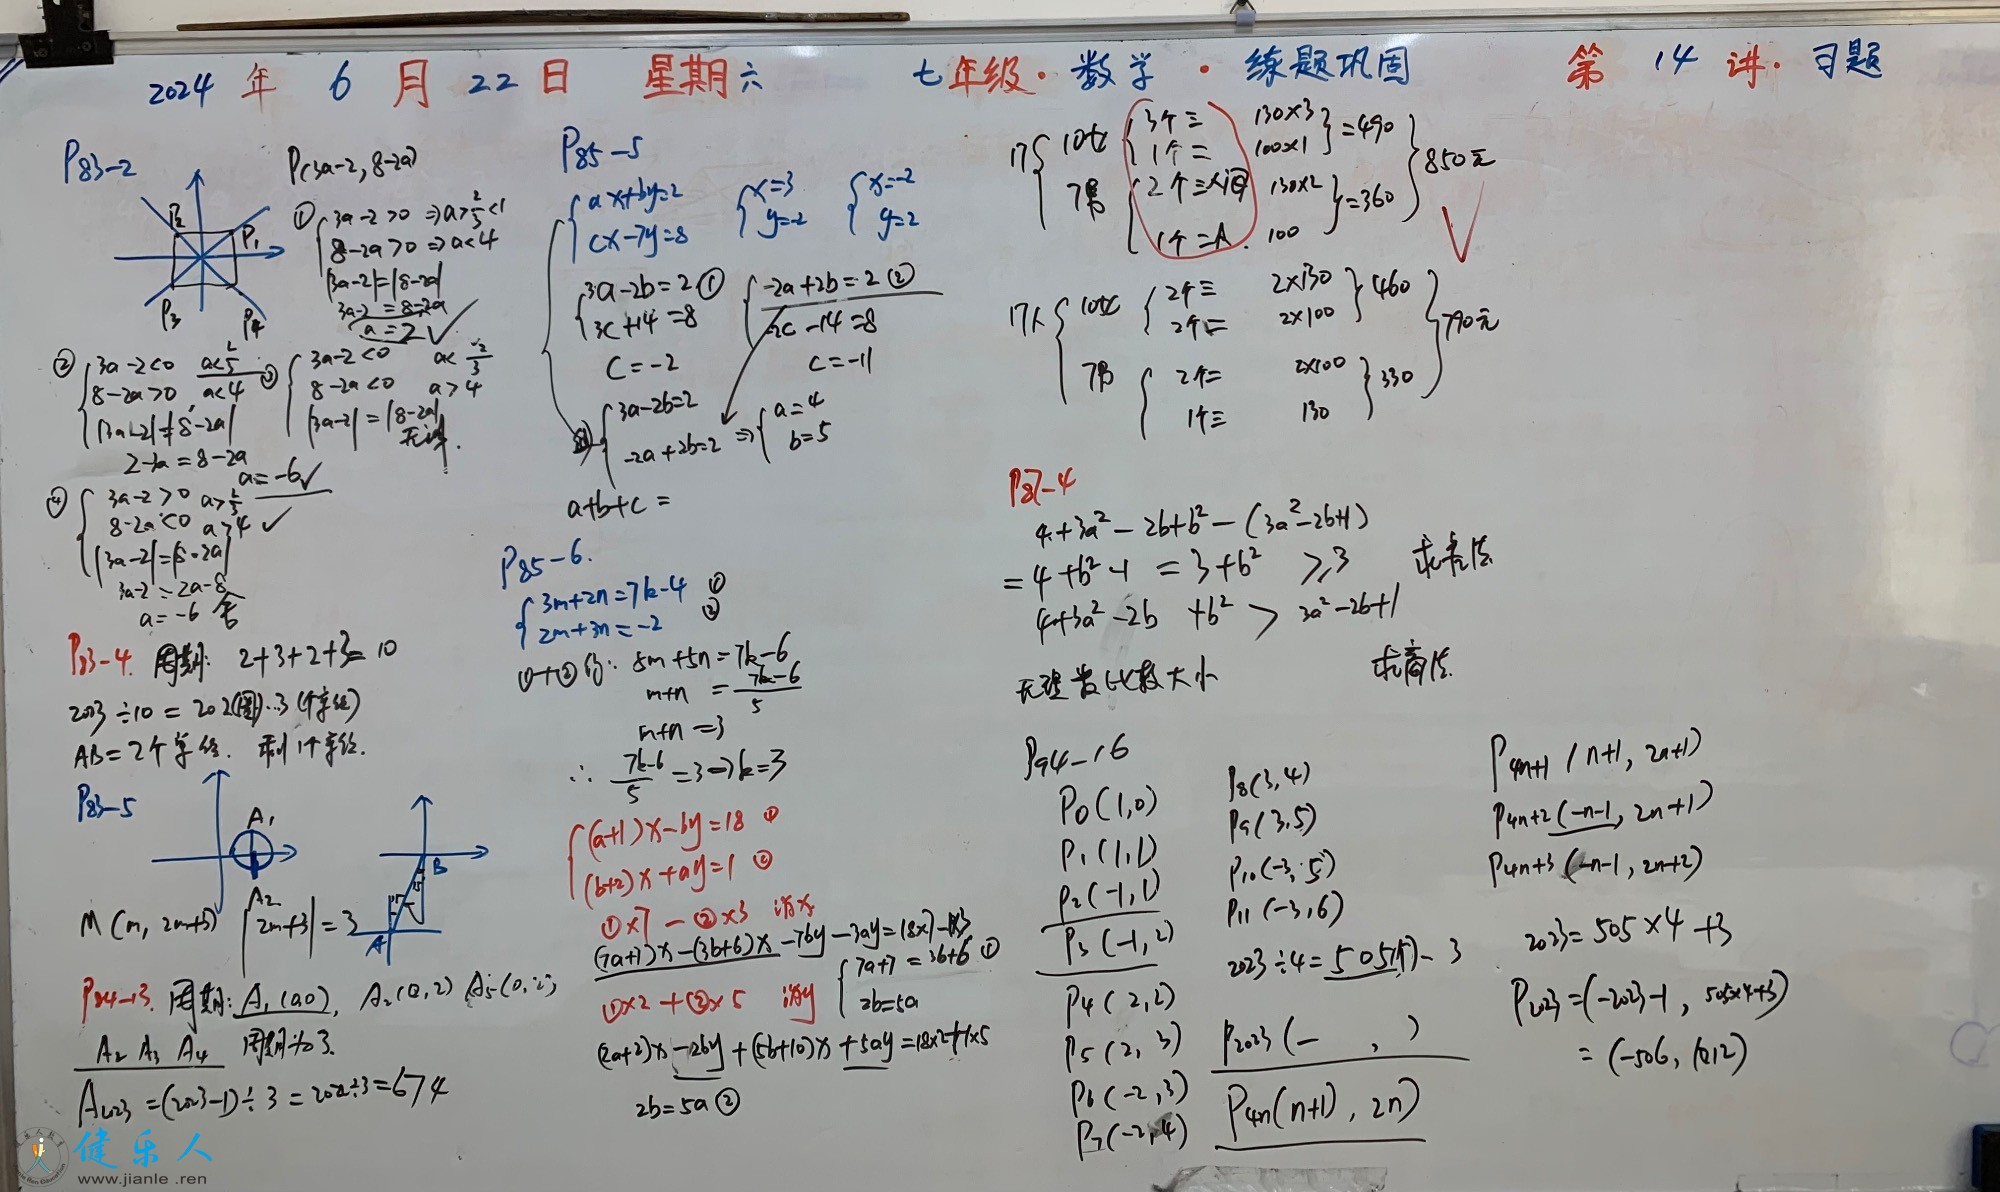 2024 年 6 月 22 日 星期六 七年级·数学·练题巩固 第 14 讲·习题
P83-2
P(3a-2, 8-2a)
P2
P1
P3
P4
① 3a-2>0 ⇒a>
8-2a>0 ⇒a<4
|3a-2|=|8-2a|
3a-2=8-2a
a=2 ✓
② 3a-2<0
8-2a>0 a<4
2-3a=8-2a
a=-6 ✓
③ 3a-2<0
8-2a<0 a>4
|3a-2|=|8-2a|
④ 3a-2>0
8-2a<0 a>4 ✓
|3a-2|=|8-2a|
3a-2=2a-8
a=-6 舍
P83-4. 周期: 2+3+2+3=10
2023÷10=202(周)··3(个单位)
AB=2个单位. 剩1个单位.
P83-5
A1
A2
B
A
M(m, 2m+3) |2m+3|=3
P84-13. 周期: A1(a,0), A2(0,2)
A2 A3 A4 周期为3.
A2023=(2023-1)÷3=2022÷3=674
P85-5
ax+by=2
cx-7y=8
x=3
y=-2
x=-2
y=2
3a-2b=2 ①
3c+14=8
c=-2
-2a+2b=2 ②
-2c-14=8
c=-11
3a-2b=2
-2a+2b=2
⇒ a=4
b=5
a+b+c=
P85-6.
3m+2n=7k-4 ①
2m+3n=-2 ②
①+②得: 5m+5n=7k-6
m+n=(7k-6)/5
m+n=3
∴ (7k-6)/5=3⇒k=3
(a+1)x-by=18 ①
(b+2)x+ay=1 ②
①×7-②×3 消x
(7a+7)x-(3b+6)x-7by-3ay=18×7-1×3
7a+7=3b+6 ①
2b=5a
①×2+②×5 消y
(2a+2)x-2by+(5b+10)x+5ay=18×2+1×5
2b=5a ②
17 10女 3个三 130×3
1个二 100×1 =490
7男 2个三人间 130×2 =360
1个二人. 100
850元
17人 10女 2个三 2×130
2个二 2×100 460
7男 2个二 2×100
1个三 130 330
790元
P87-4
4+3a²-2b+b²-(3a²-2b+1)
=4+b²-1=3+b² ≥3 求差法
4+3a²-2b+b²>3a²-2b+1
无理数比较大小 求商法.
P94-16
P0(1,0)
P1(1,1)
P2(-1,1)
P3(-1,2)
P4(2,2)
P5(2,3)
P6(-2,3)
P7(-2,4)
P8(3,4)
P9(3,5)
P10(-3,5)
P11(-3,6)
2023÷4=505 3
P2023(- , )
P4n(n+1), 2n)
P4n+1(n+1, 2n+1)
P4n+2(-n-1, 2n+1)
P4n+3(-n-1, 2n+2)
2023=505×4+3
P2023=(-2023-1, 505×4+3)
=(-506, 1012)
健乐人
www.jianle.ren